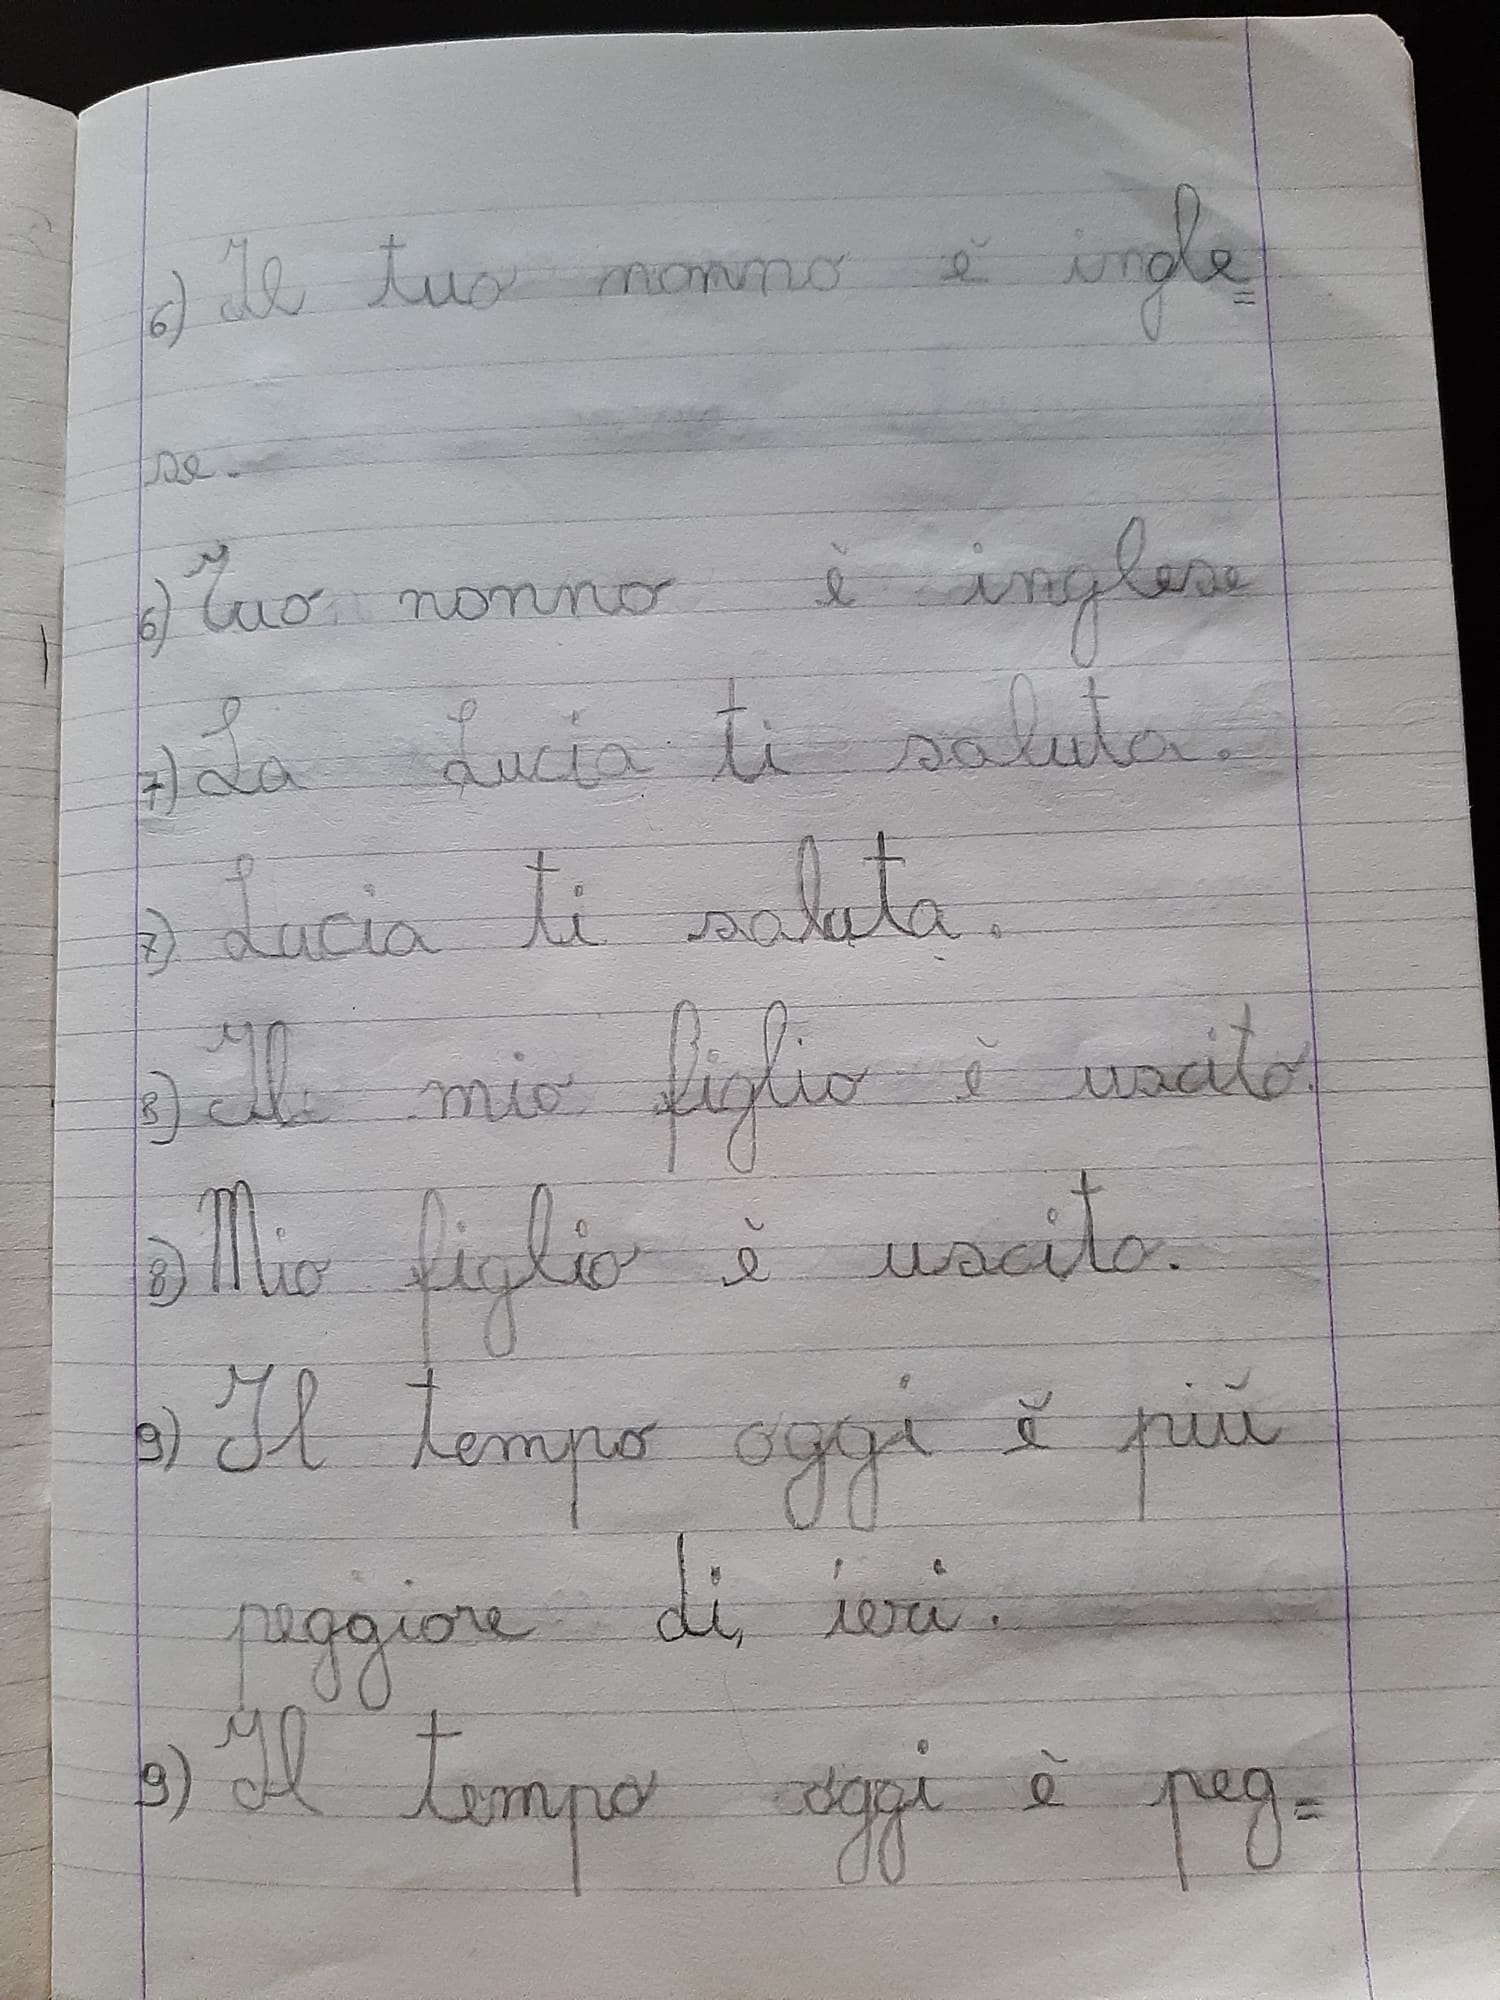 6) Il tuo nonno è ingle=
se.
6) Tuo nonno è inglese
7) La Lucia ti saluta.
7) Lucia ti saluta.
8) Il mio figlio è uscito.
8) Mio figlio è uscito.
9) Il tempo oggi è più
peggiore di, ieri.
9) Il tempo oggi è peg=